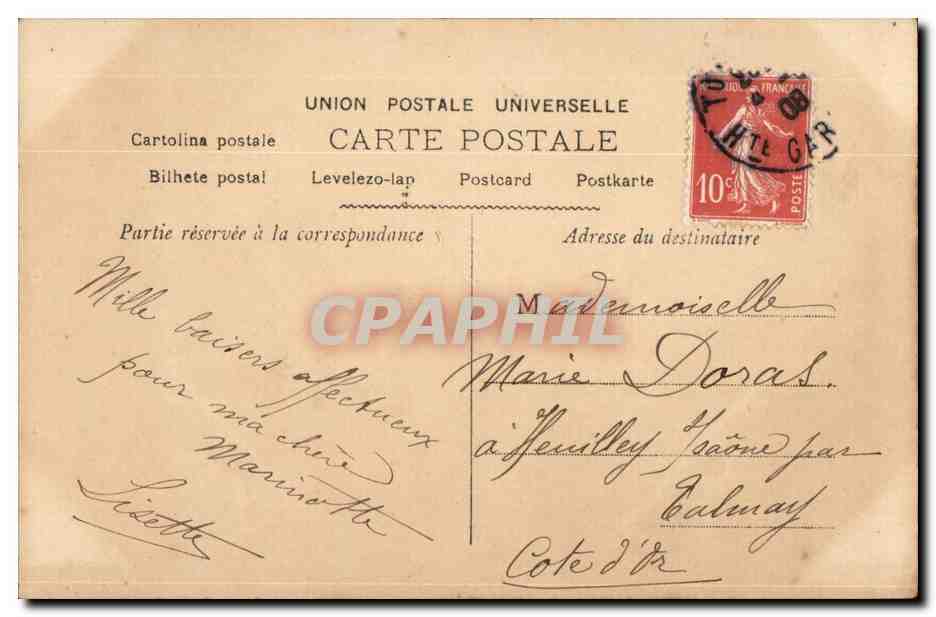 UNION POSTALE UNIVERSELLE
CARTE POSTALE
Cartolina postale
Bilhete postal Levelezo-lap Postcard Postkarte
RÉPUBLIQUE FRANÇAISE
10c POSTES
08
HTE GAR
Partie réservée à la correspondance
Mille baisers affectueux
pour ma chère
Marinotte
Lisette
Adresse du destinataire
Mademoiselle
Marie Doras.
à Heuilley s/saône par
Talmay
Cote d'Or
CPAPHIL